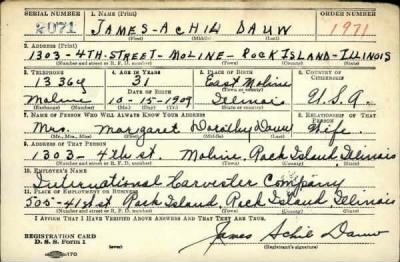 SERIAL NUMBER 1. NAME (Print) ORDER NUMBER
2071 JAMES-ACHIL DAUW 1971
(First) (Middle) (Last)
2. ADDRESS (Print)
1303-4TH-STREET-MOLINE-ROCK ISLAND-ILLINOIS
(Number and street or R. F. D. number) (Town) (County) (State)
3. TELEPHONE 4. AGE IN YEARS 5. PLACE OF BIRTH 6. COUNTRY OF CITIZENSHIP
1336y 31 East Moline
DATE OF BIRTH
Moline 10-15-1909 Illinois U.S.A.
(Exchange) (Number) (Mo.) (Day) (Yr.) (State or country)
7. NAME OF PERSON WHO WILL ALWAYS KNOW YOUR ADDRESS 8. RELATIONSHIP OF THAT PERSON
Mrs. Margaret Dorothy Dauw Wife
(Mr., Mrs., Miss) (First) (Middle) (Last)
9. ADDRESS OF THAT PERSON
1303-4th st. Moline, Rock Island Illinois
(Number and street or R. F. D. number) (Town) (County) (State)
10. EMPLOYER'S NAME
International Harvester Company
11. PLACE OF EMPLOYMENT OR BUSINESS
505-41st st Rock Island, Rock Island Illinois
(Number and street or R. F. D. number) (Town) (County) (State)
I AFFIRM THAT I HAVE VERIFIED ABOVE ANSWERS AND THAT THEY ARE TRUE.
REGISTRATION CARD
D. S. S. Form 1 James Achil Dauw
(Registrant's signature)